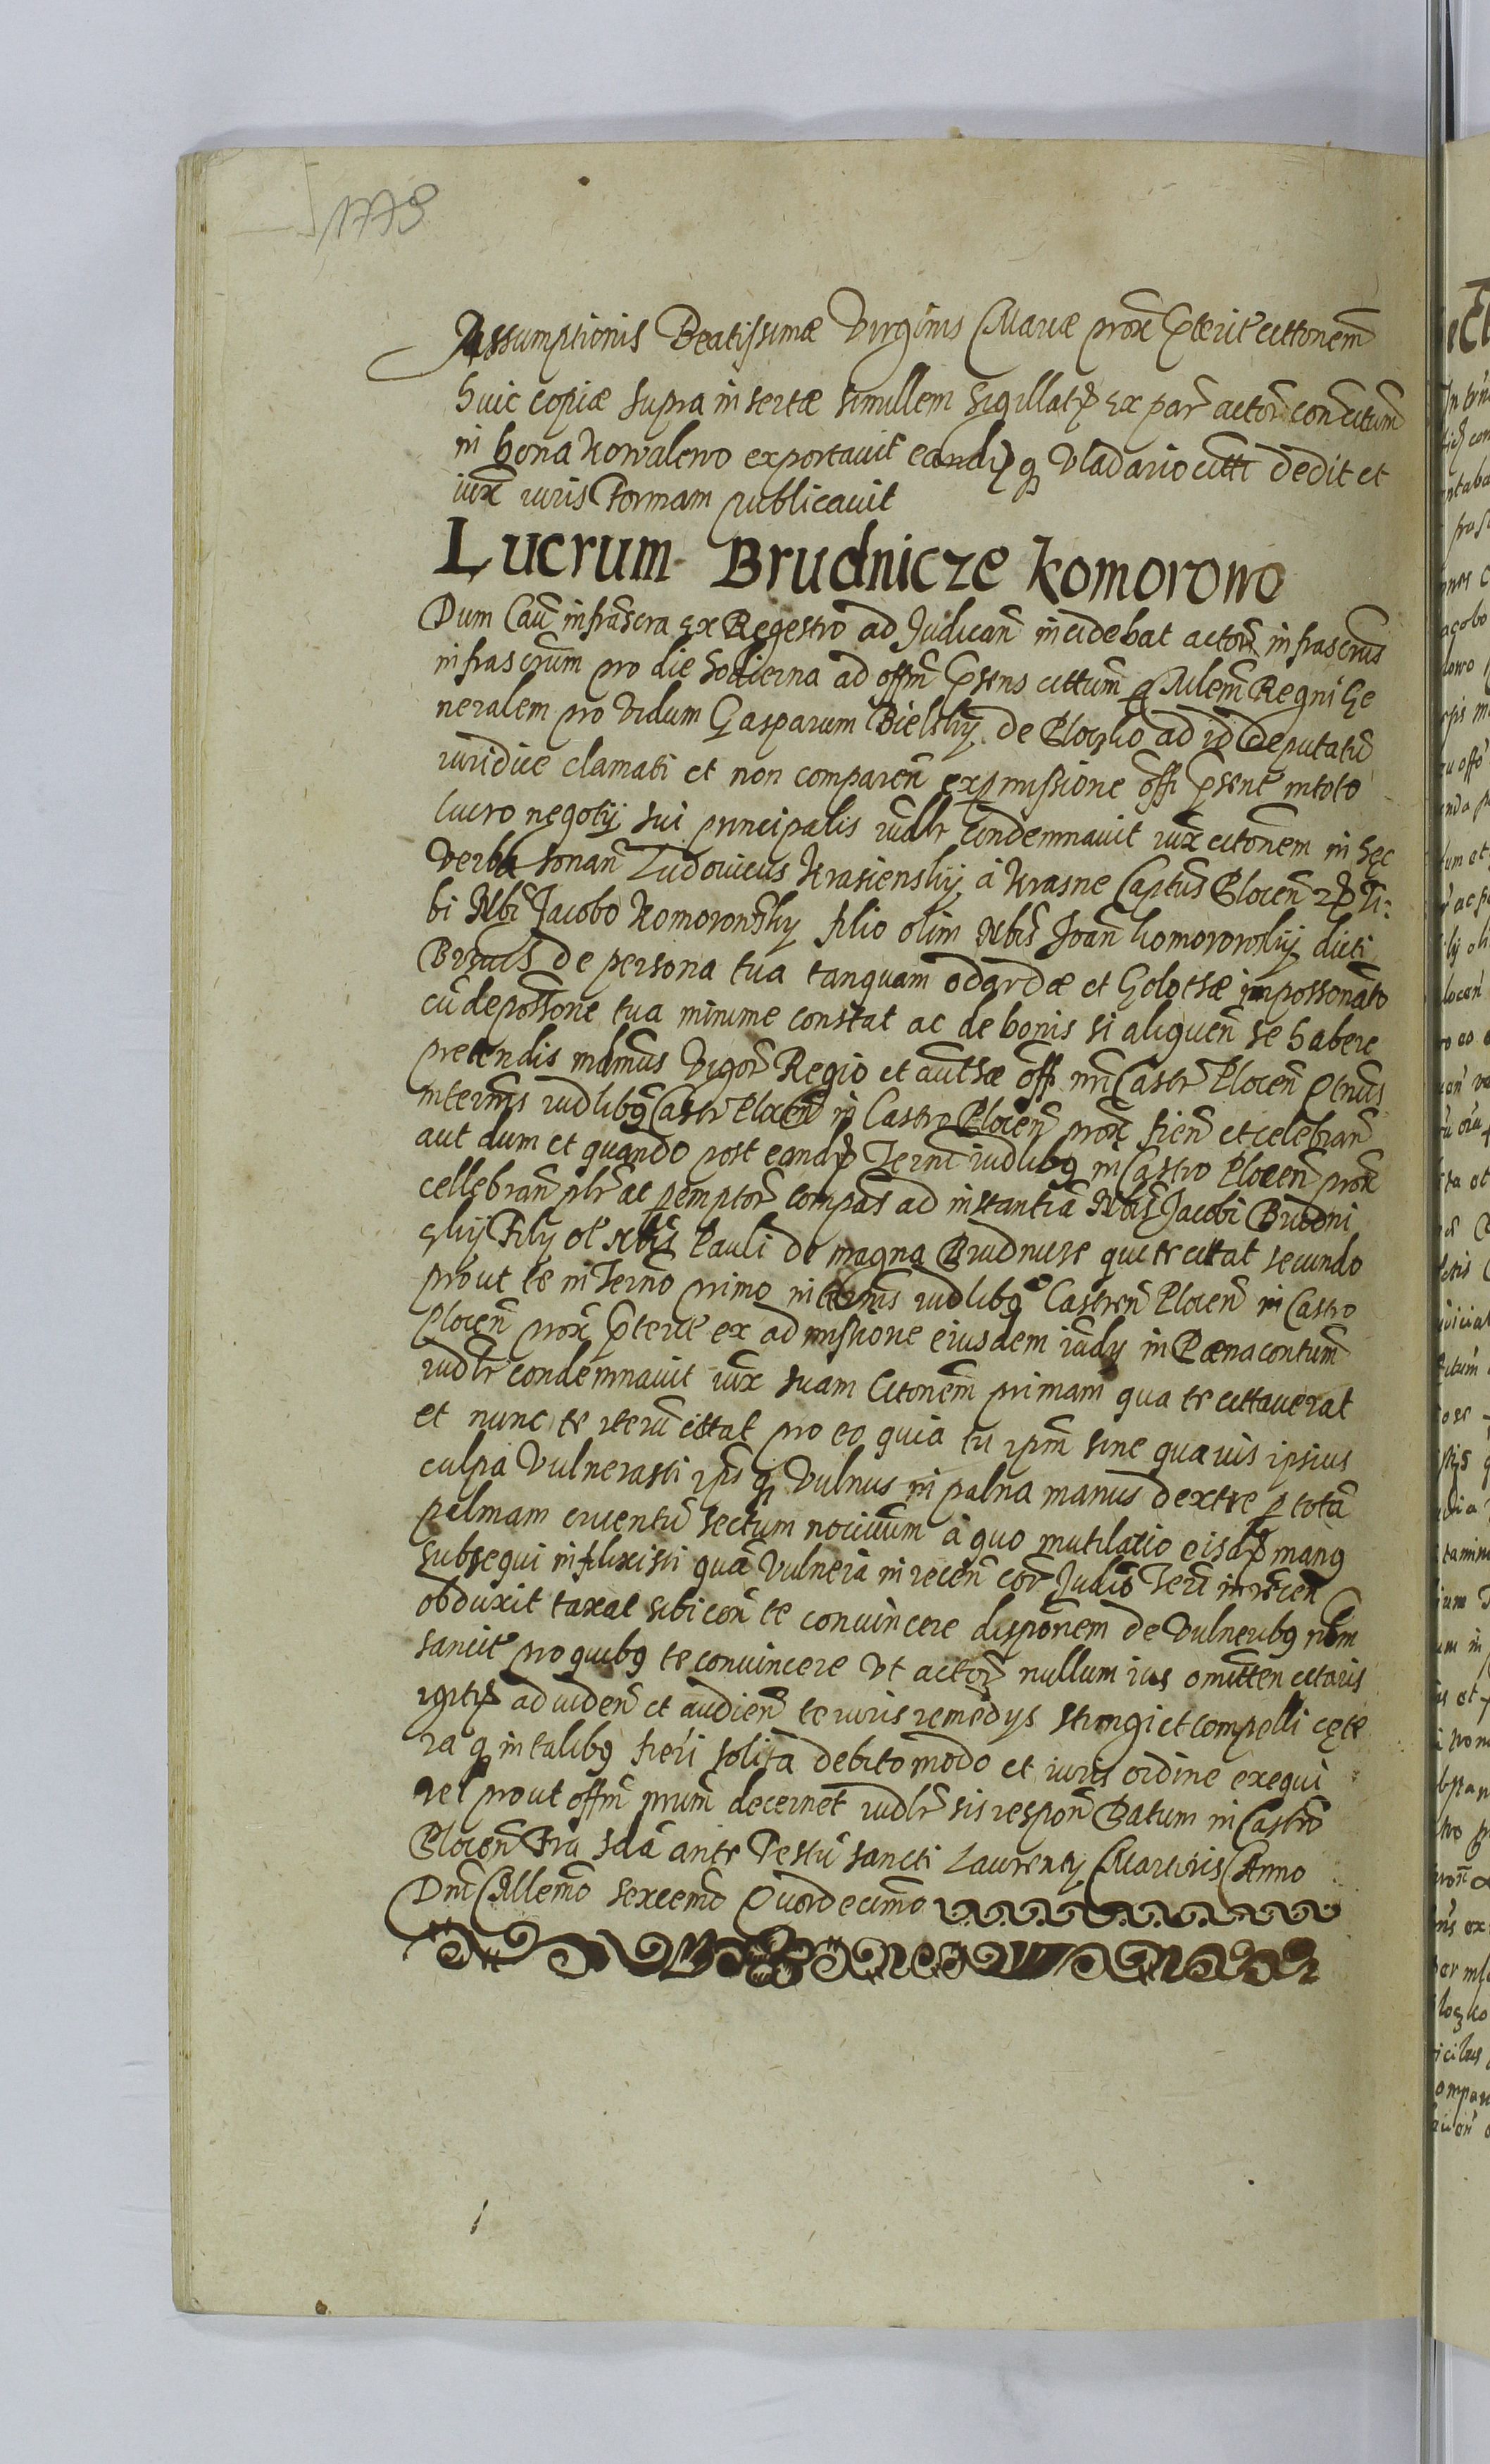 1778
Assumptionis Beatissimæ Virginis Mariæ prox p̃terit cittonem̃
huic copiæ supra insertæ simillem sigillatã ex par actor̃ concitum̃
in bona Kowalewo exportavit eandq́ Vladario citti dedit et
iux̃ iuris Formam publicavit
Lucrum Brudnicze Komorowo
Dum Cau infrascra ex Regestro ad Judican̄ incidebat actor̃ infrascrus
infrascrum pro die hodierna ad off̃m p̃sens cittum p̱ Mlem̃ Regni Ge
neralem providum Gasparum Bielsky de Ploczko ad id deputatũ
iuridice clamati et non comparen̄ ex pmissione off̃i p̃sent in toto
lucro negotÿ sui principalis iudlr condemnavit iux̃ citonem̃ in hęc
verba sonan̄ Ludovicus Krasienskÿ à Krasne Captus Plocen̄ Ti-
bi Nbi Jacobo Komorowsky filio olim Nbis Joan̄ Komorowskÿ dicti
de persona tua tanquam odardæ et Golotæ impossonato
cũ de possone tua minime constat ac de bonis si aliquen̄ se habere
pretendis mdmus vigor̃ Regio et authæ off̃i nr̃i Castr̃ Plocen̄
in ternis iudlibꝫ Castr̃ Plocen̄ in Castro Plocen̄ prox̃ fien̄ et celebran̄
aut dum et quando post eand Termi iudlibꝫ in Castro Plocen̄ prox̃
cellebran̄ plr̃ ac pemptor̃ compas ad instantiã Nbis Jacobi Brudni
skÿ Filÿ ol Nbis Pauli de magna Brudnicze qui te cittat secundo
prout te in Terno primo in ternis iudlibꝫ Castren̄ Plocen̄ in Castro
Plocen̄ prox̃ p̃terit ex admissione eiusdem iudÿ in Pæna contum̃
iudlr condemnavit iux̃ suam Citonem̃ primam qua te cittaverat
et nunc te iterũ cittat pro eo quia tu ipm̃ sine quavis ipsius
culpa Vulnerasti ipsi q́ Vulnus in palma manus dextre p totã
palmam cruentũ sectum nocivum à quo mutilatio eisd manꝫ
subsequi inflixisti quã Vulnera in recen̄ cor̃ Judio Terr in recen̄
obduxit taxat sibi con̄ te convincere disponem de Vulneribꝫ nem̃
sancit pro quibꝫ te convincere Vt actor̃ nullum ius omitten citaris
igitr ad viden̄ et audien̄ te iuris remedÿs stringi et compelli cęte
ra q́ in talibꝫ fieri solita debito modo et iuris ordine exequi
vel prout off̃m prnm̃ decernet iudlr sis respon̄ Datum in Castro
Plocen̄ Fria sda ante Festũ Sancti Laurentÿ Martiris Anno
Dni Millemo sexcemo Quordecimo